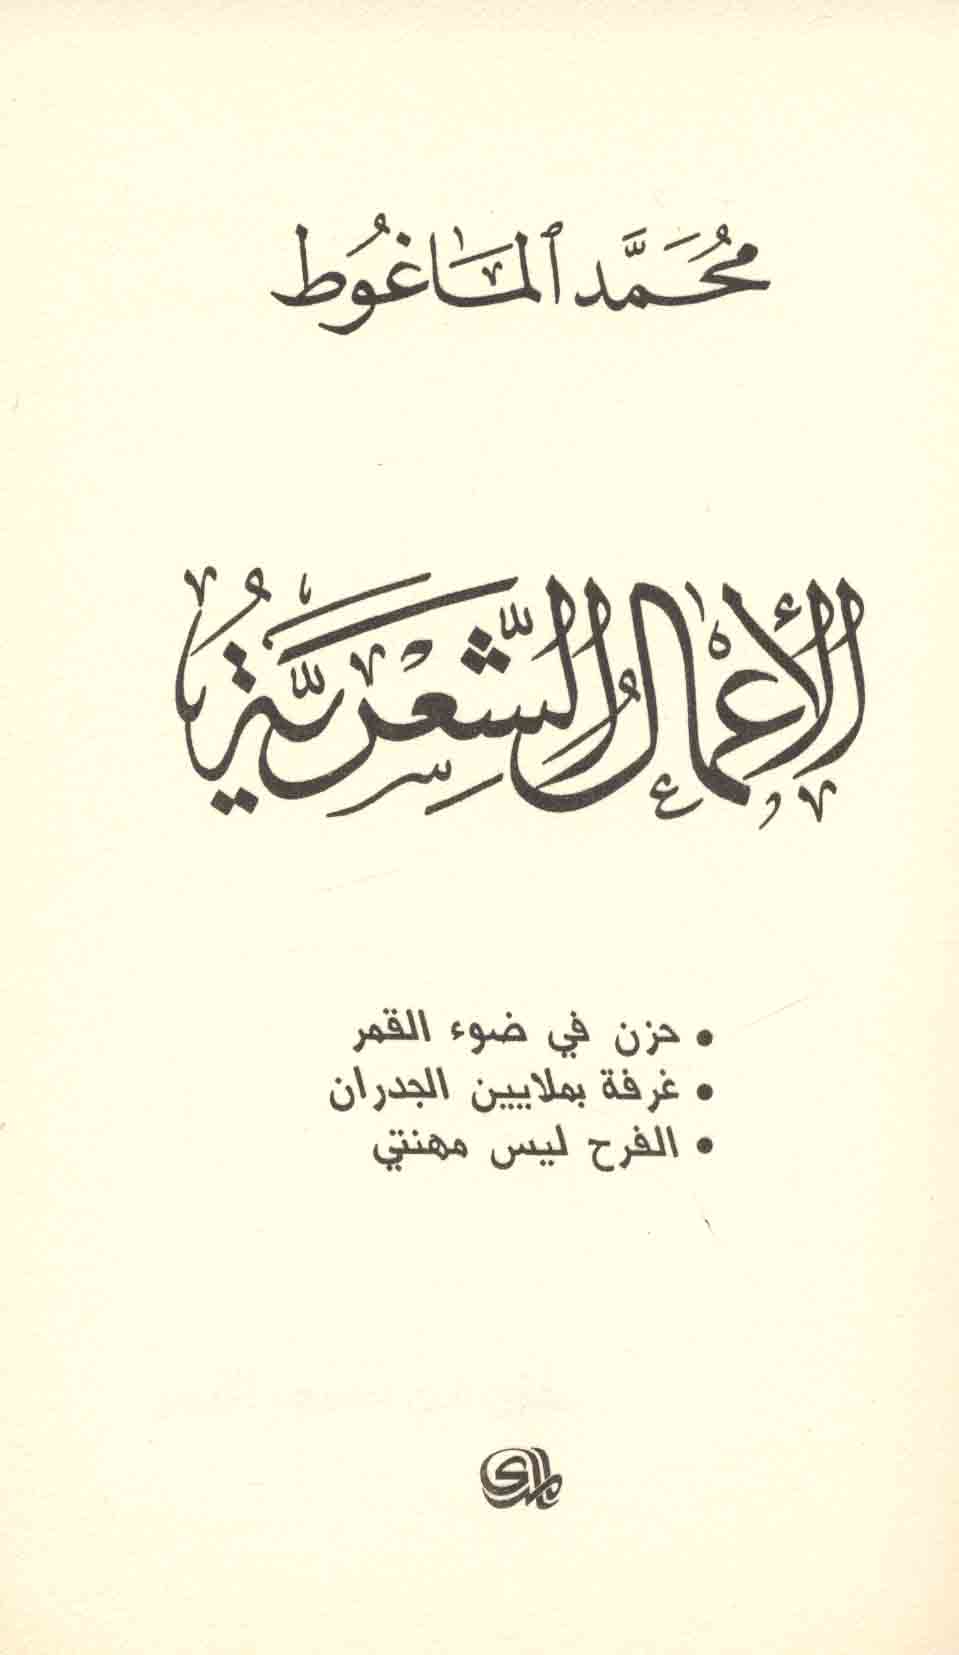 محمد الماغوط
الأعمال الشعرية
• حزن في ضوء القمر
• غرفة بملايين الجدران
• الفرح ليس مهنتي
المدى